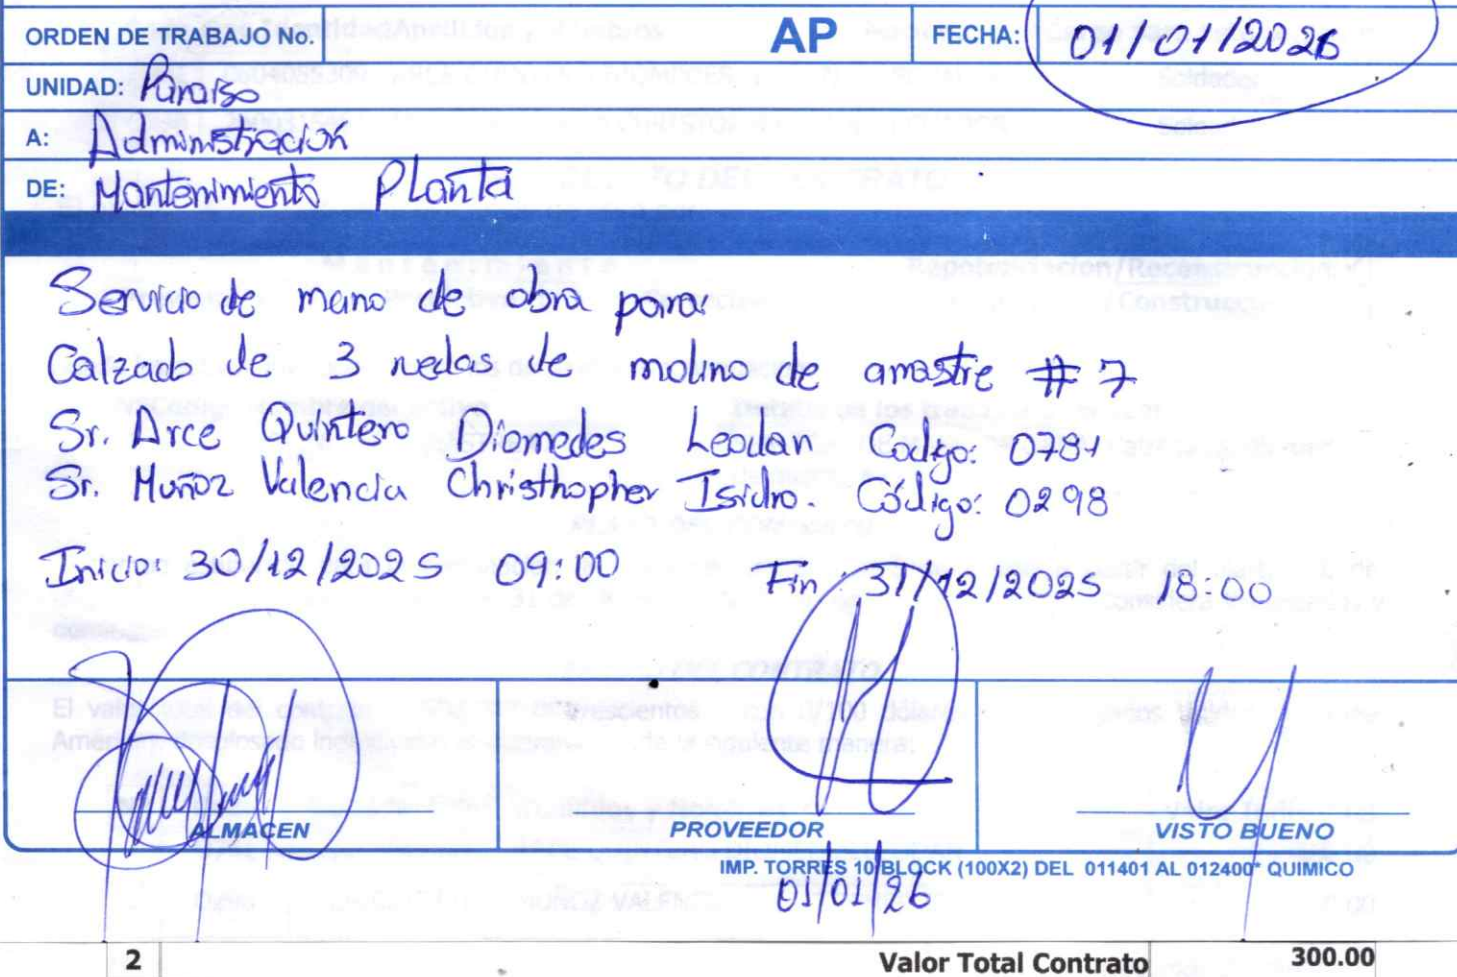 ORDEN DE TRABAJO No. AP FECHA: 01/01/2026
UNIDAD: Paraiso
A: Administración
DE: Mantenimiento Planta
Servicio de mano de obra para
Calzado de 3 ruedas de molino de arrastre # 7
Sr. Arce Quintero Diomedes Leodan Código: 0781
Sr. Muñoz Valencia Christhopher Isidro. Código: 0298
Inicio: 30/12/2025 09:00 Fin 31/12/2025 18:00
ALMACEN PROVEEDOR VISTO BUENO
IMP. TORRES 10 BLOCK (100X2) DEL 011401 AL 012400* QUIMICO
01/01/26
2 Valor Total Contrato 300.00